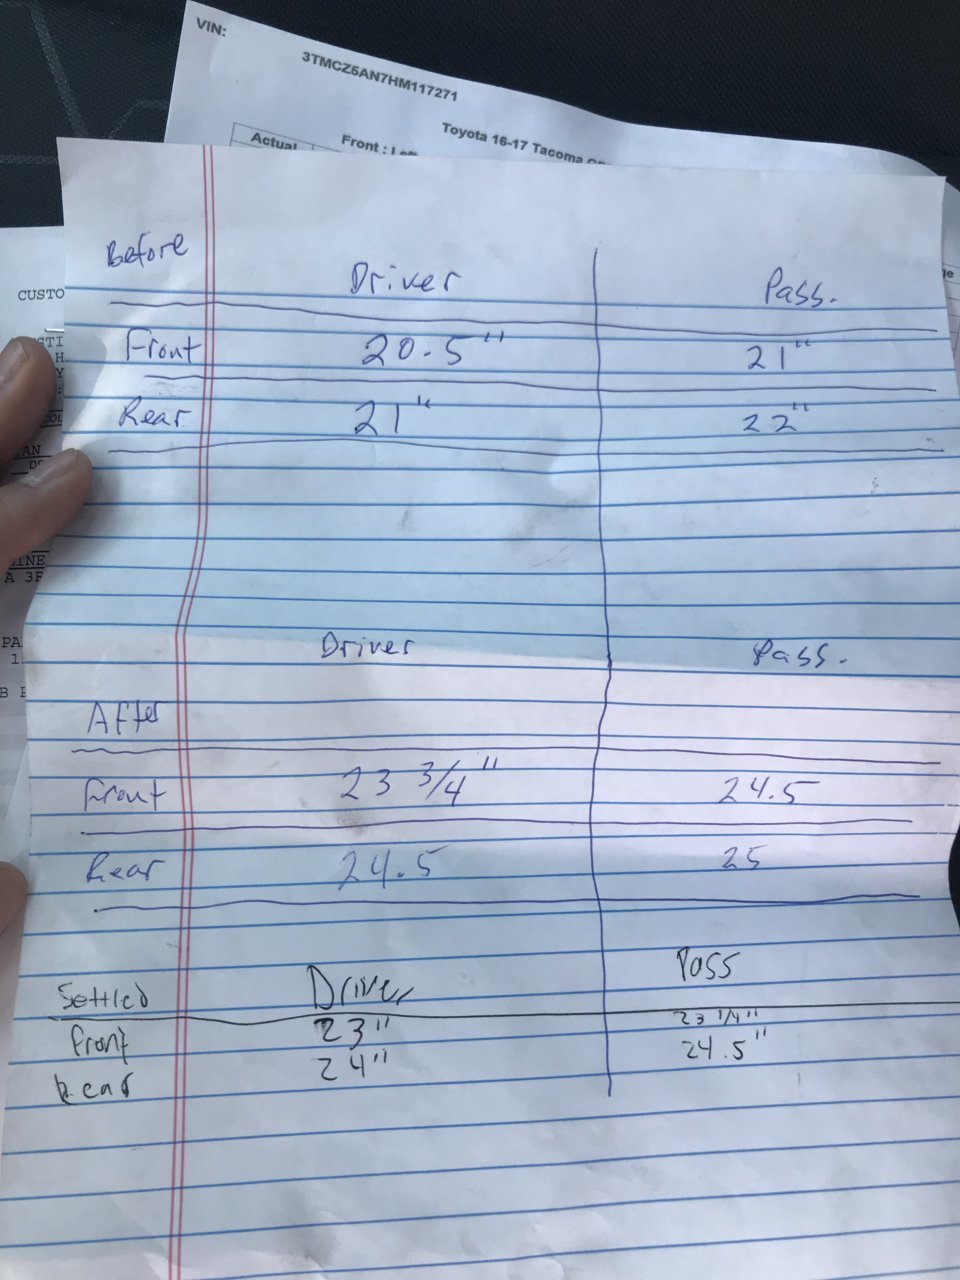 VIN:
3TMCZ5AN7HM117271
Toyota 16-17 Tacoma
Actual Front : Left
Before Driver Pass.
Front 20.5" 21"
Rear 21" 22"
Driver Pass.
After
Front 23 3/4" 24.5
Rear 24.5 25
Settled Driver Pass
Front 23" 23 1/4"
Rear 24" 24.5"
CUSTO
STI
H
Y
:
AN
DS
LINE
A 3F
PA
1
B